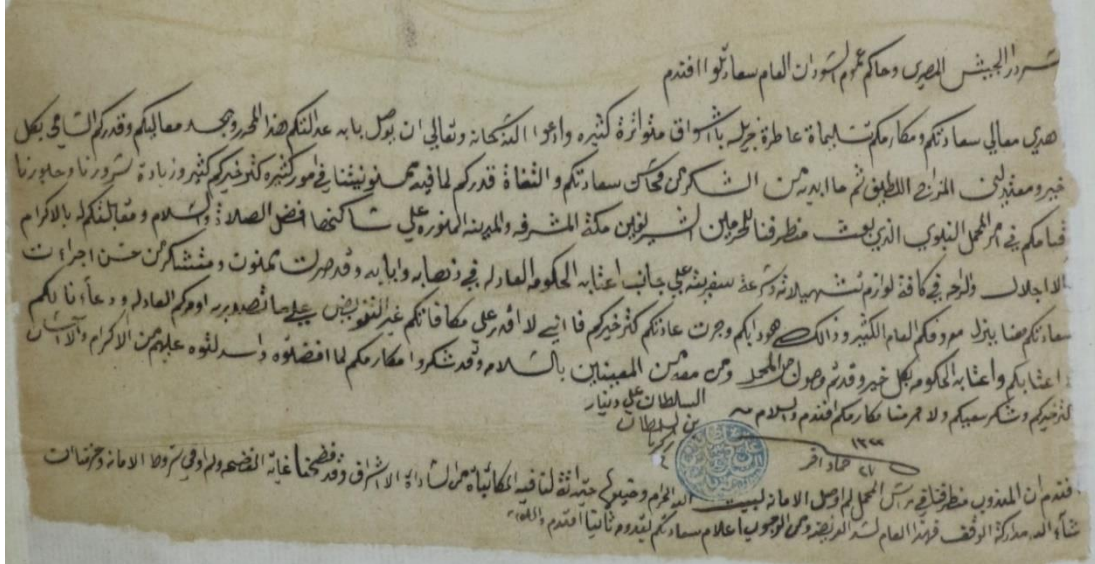 سردار الجيش المصري وحاكم عموم السودان العام سعادتلو افندم
هدي معالي سعادتكم ومكارمكم تسليمات عاطرة جزيله باشواق متواترة كثيره وادعوا الله سبحانه وتعالي ان يوصل بابه عدالتكم هذا المحرر ويجد معاليكم وقدركم السامي بكل
خير ومعتدلين المزاج اللطيف ثم ما ابديه من الشكر من محاسن سعادتكم والتفاة قدركم لما فيه ممنونيتنا في امور كثيره كثر خيركم كثير وزيادة سرورنا وحبورنا
قيامكم في امر المحمل النبوي الذي بعث منطرفنا للحرمين الشريفين مكة المشرفه والمدينه المنوره علي ساكنها افضل الصلاة والسلام ومقابلتكم له بالاكرام
الاجلال في كافة لوازم تسهيلاته وسرعة سفريته علي جانب اعتابه الحكومه العادله في ذهابه وايابه وقد صرت ممنون ومتشكر من حسن اجراءت
سعادتكم معروفكم العام الكثير وذالك وجرت عادتكم كثر خيركم فاني لا اقدر علي مكافاتكم غير التفويض علي ما تصدر به اوامركم العادله ودعاءنا لكم
اعتابكم واعتابه الحكومه بكل خير وقد تم وصول المحمل ومن معه من المعينين بالسلام وقد شكروا مكارمكم لما افضلتوه واسدلتوه عليهم من الاكرام
كثر خيركم وشكر سعيكم ولا حرمنا مكارمكم افندم والسلام
السلطان علي دينار
بن السلطان زكريا
١٣٢٢
٢١ جماد اخر
افندم ان المندوب منطرفنا في المحمل لم اوصل الامانه لبيت الله الحرام لنا فيه المكاتباة من السادات الاشراف وقد فضحنا غاية الفضيحه ولم اوفي شروط الامانه
شاء الله مداركة الوقف فهذا العام ومن الوجوب اعلام سعادتكم لقدومه ثانيا افندم